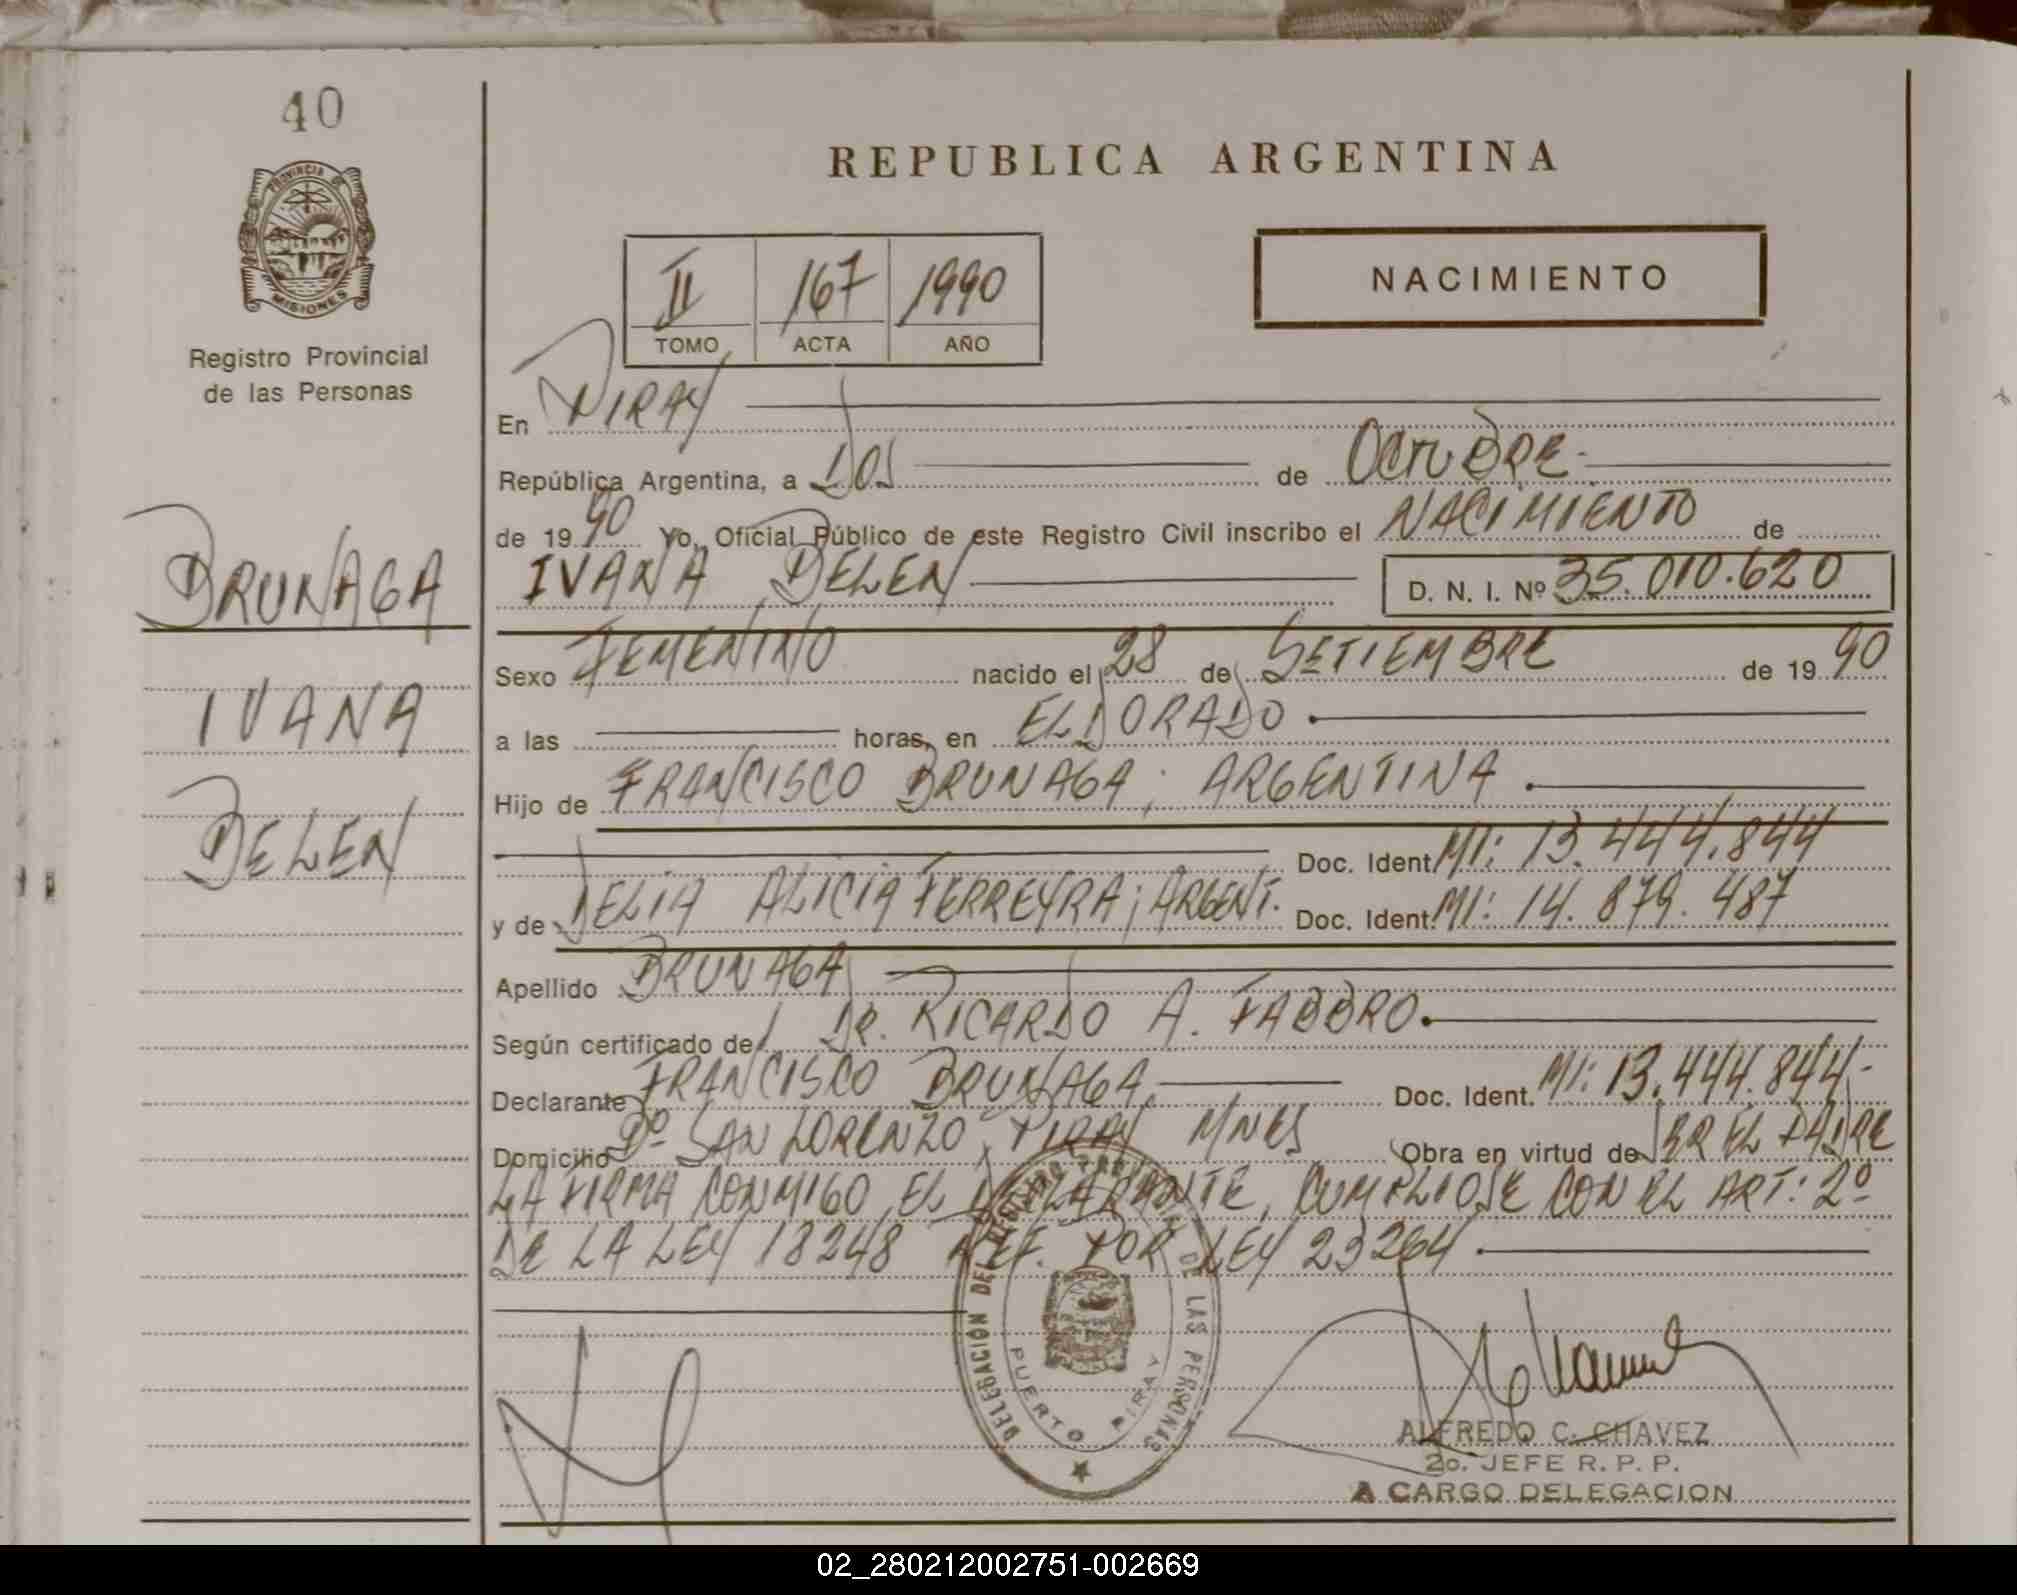 40
PROVINCIA DE
MISIONES
Registro Provincial
de las Personas
BRUNAGA
IVANA
BELEN
REPUBLICA ARGENTINA
II 167 1990
TOMO ACTA AÑO
NACIMIENTO
En PIRAY
República Argentina, a DOS de OCTUBRE.
de 19 90 Yo, Oficial Público de este Registro Civil inscribo el NACIMIENTO de
IVANA BELEN D. N. I. Nº 35.010.620
Sexo FEMENINO nacido el 28 de SETIEMBRE de 19 90
a las horas, en ELDORADO.
Hijo de FRANCISCO BRUNAGA; ARGENTINA.
Doc. Ident. MI: 13.444.844
y de DELIA ALICIA FERREYRA; ARGENT. Doc. Ident. MI: 14.879.487
Apellido BRUNAGA
Según certificado de DR. RICARDO A. FABBRO.
Declarante FRANCISCO BRUNAGA. Doc. Ident. MI: 13.444.844.-
Domicilio Bº SAN LORENZO, PIRAY MNES Obra en virtud de SER EL PADRE
LA FIRMA CONMIGO EL DECLARANTE, CUMPLIOSE CON EL ART: 2º
DE LA LEY 18248 REF. POR LEY 23264.
DELEGACION DEL REGISTRO PROVINCIAL DE LAS PERSONAS
PUERTO PIRAY
ALFREDO C. CHAVEZ
2o. JEFE R. P. P.
A CARGO DELEGACION
02_280212002751-002669